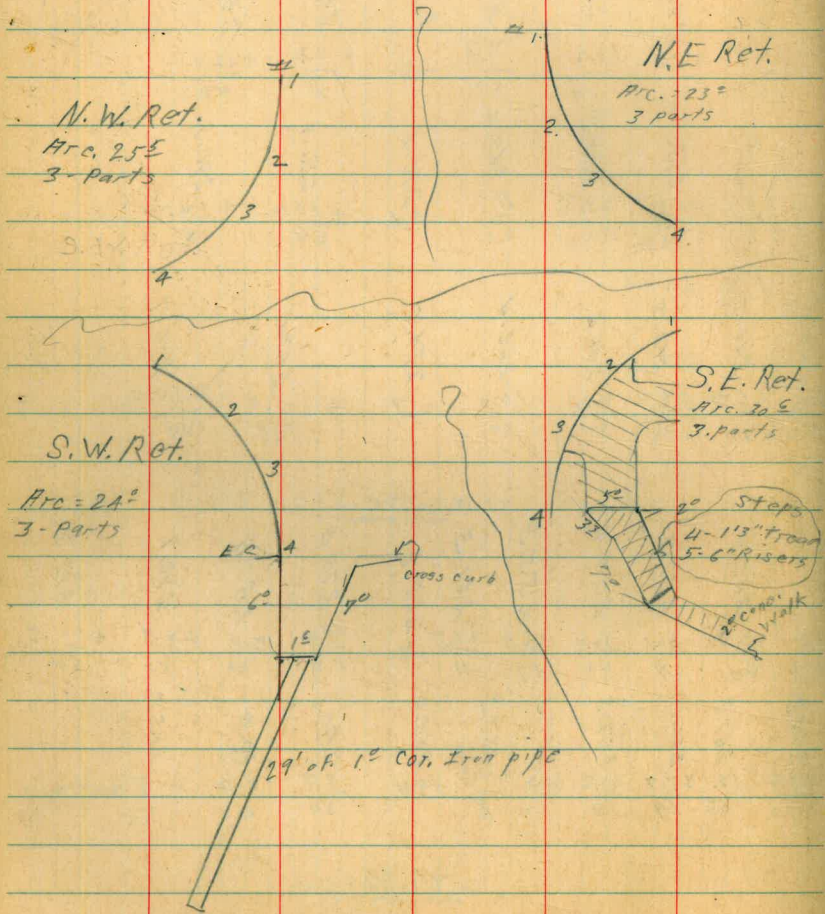 N.W. Ret.
Arc. 25⁵
3-Parts
1
2
3
4
N.E Ret.
Arc. = 23⁰
3 parts
1.
2.
3
4
S.W. Ret.
Arc = 24⁰
3-Parts
1
2
3
4
E.C.
6⁰
7⁰
1⁵
cross curb
29' of 1⁰ Cor. Iron pipe
S.E. Ret.
Arc. 30⁶
3.parts
1
2
3
4
5⁰
2⁰
Steps
4-1'3" tread
5-6" Risers
2⁰ conc.
walk